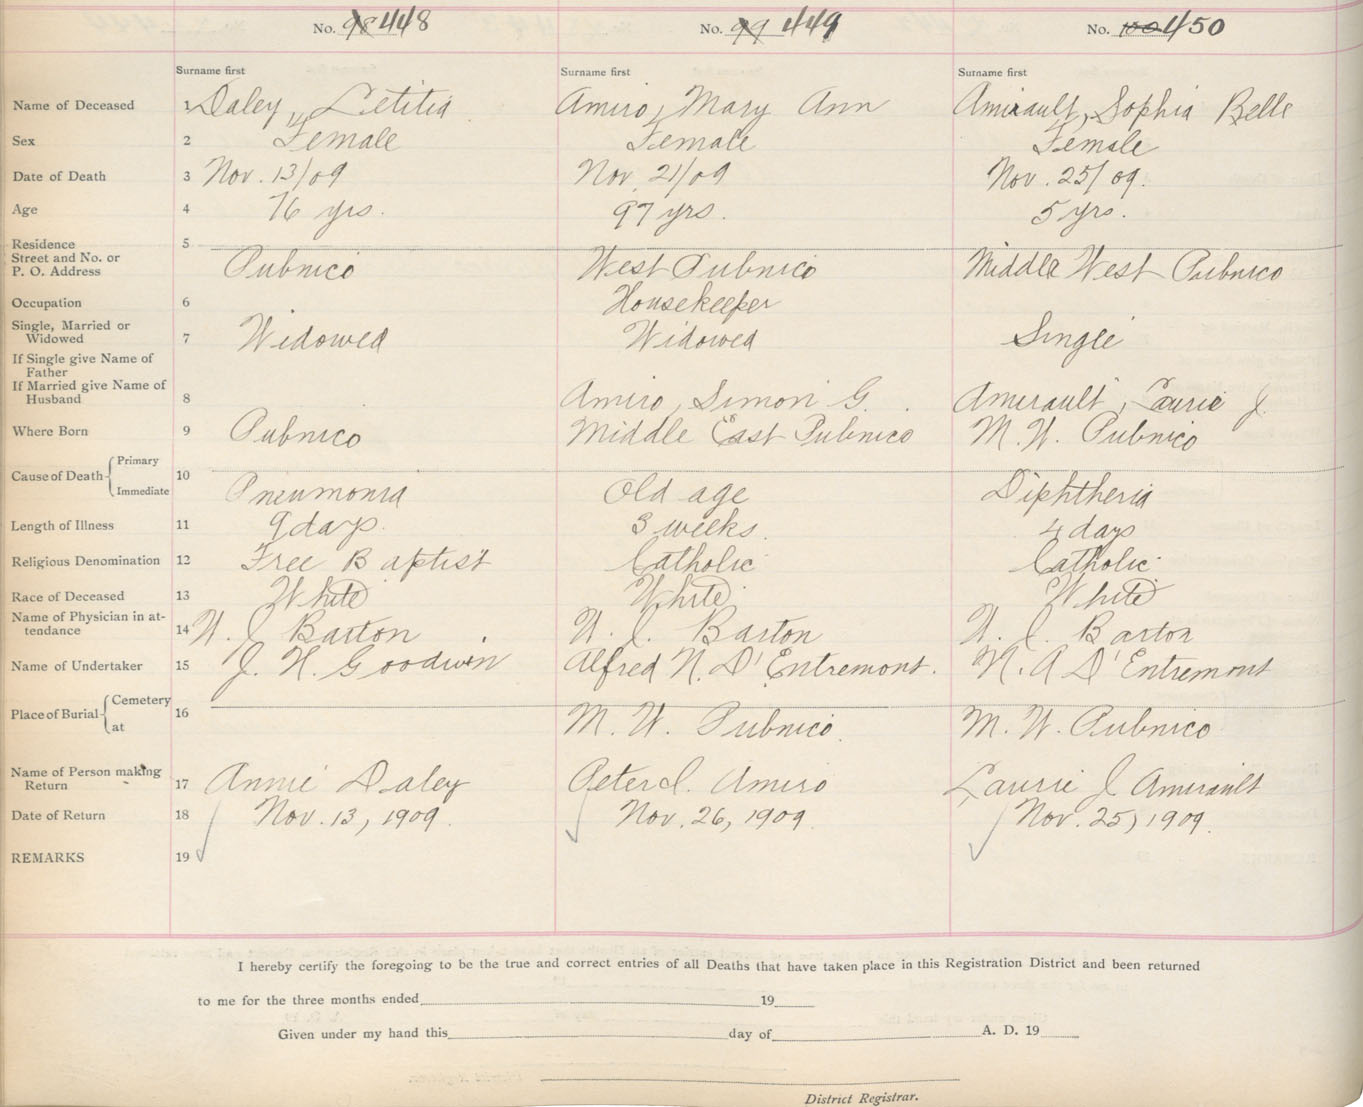 No. 98 448 No. 99 449 No. 100 450
Surname first Surname first Surname first
Name of Deceased 1 Daley, Letitia Amiro, Mary Ann Amirault, Sophia Belle
Sex 2 Female Female Female
Date of Death 3 Nov. 13/09 Nov. 21/09 Nov. 25/09.
Age 4 76 yrs. 97 yrs. 5 yrs.
Residence 5
Street and No. or
P. O. Address Pubnico West Pubnico Middle West Pubnico
Occupation 6 Housekeeper
Single, Married or
Widowed 7 Widowed Widowed Single
If Single give Name of
Father
If Married give Name of
Husband 8 Amiro, Simon G. Amirault, Laurie J.
Where Born 9 Pubnico Middle East Pubnico M. W. Pubnico
Cause of Death Primary 10
Immediate Pneumonia Old age Diphtheria
Length of Illness 11 9 days. 3 weeks. 4 days
Religious Denomination 12 Free Baptist Catholic Catholic
Race of Deceased 13 White White White
Name of Physician in at-
tendance 14 W. J. Barton W. J. Barton W. J. Barton
Name of Undertaker 15 J. H. Goodwin Alfred N. D'Entremont. N. A D'Entremont
Place of Burial Cemetery 16
at M. W. Pubnico. M. W. Pubnico
Name of Person making
Return 17 Annie Daley Peter J. Amiro Laurie J Amirault
Date of Return 18 Nov. 13, 1909. Nov. 26, 1909. Nov. 25, 1909.
REMARKS 19
I hereby certify the foregoing to be the true and correct entries of all Deaths that have taken place in this Registration District and been returned
to me for the three months ended 19
Given under my hand this day of A. D. 19
District Registrar.